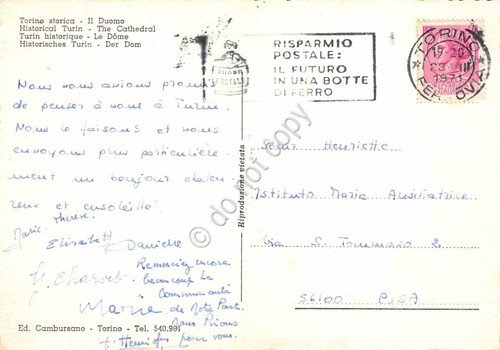 Torino storica - Il Duomo
Historical Turin - The Cathedral
Turin historique - Le Dôme
Historisches Turin - Der Dom
RISPARMIO
POSTALE:
IL FUTURO
IN UNA BOTTE
DI FERRO
TORINO
19-20
1971
FERROVIA
Nous vous avions promis
de penser à vous à Turin.
Nous le faisons et vous
envoyons plus particulière-
ment un bonjour chaleu-
reux et ensoleillé!
Marie
Thérèse
Elisabeth
Danielle
Remerciez encore
beaucoup la
Communauté
Maria de Notre Part.
Nous Prions
pour vous.
Soeur Henriette
Istituto Maria Ausiliatrice
Via S. Tommaso 2
56100 PISA
Riproduzione vietata
Ed. Cambursano - Torino - Tel. 540.991
do not copy